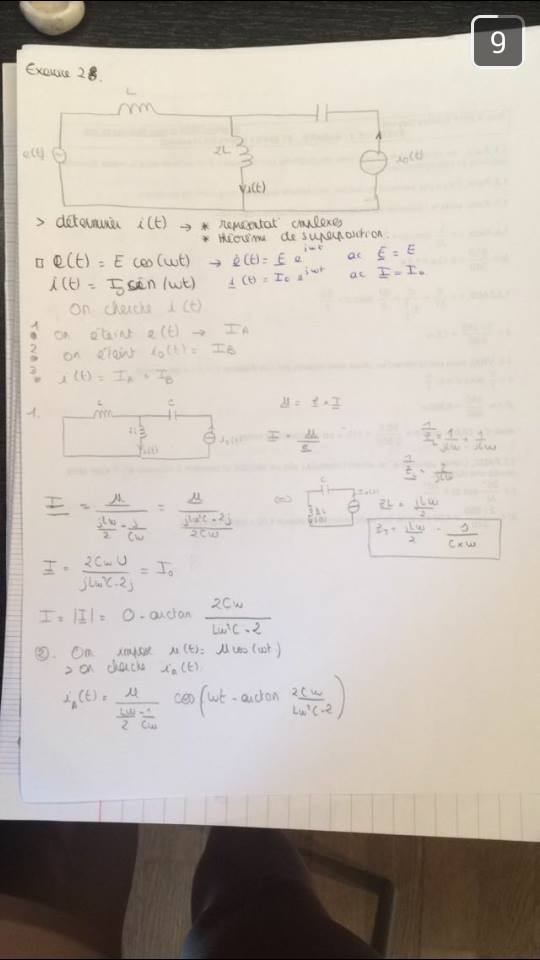 9
Exercice 28.
L
e(t)
2L
i(t)
i0(t)
> déterminer i(t) → * représentat complexes
* théorème de superposition.
□ e(t) = E cos(wt) → e(t) = E e^jwt ac E = E
i(t) = I0 sin(wt) i(t) = I0 e^jwt ac I = I0
On cherche i(t)
1. on éteint e(t) → IA
2. on éteint i0(t) = IB
3. i(t) = IA + IB
1.
L
C
2L
i(t)
i0(t)
I = u/Z
1/Z = 1/jLw + 1/jLw
ZL = jLw/2
I = u / (jLw/2 - j/Cw) = u / ((jLw²C - 2j)/2Cw)
C
ZT = jLw/2 - 1/(C×w)
I = 2CwU / (jLw²C-2j) = I0
I = |I| = 0 - arctan 2Cw / (Lw²C-2)
②. On impose u(t) = U cos(wt)
> on cherche iA(t).
iA(t) = u / (Lw/2 - 1/Cw) cos(wt - arctan 2Cw / (Lw²C-2))